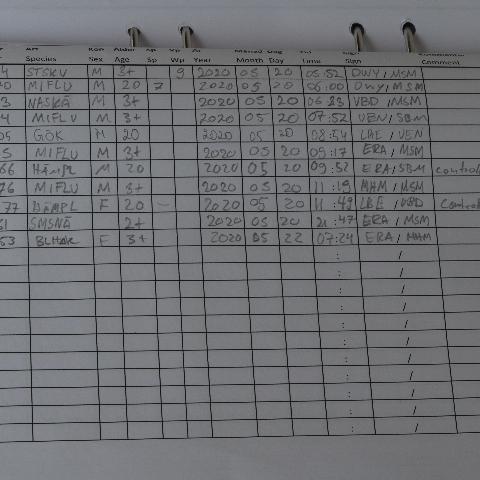 Species Sex Age Sp Vp Year Month Day Time Sign Comment
4 STSKU M 3+ 9 2020 05 20 05:52 DWY/MSM
MIFLU M 20 7 2020 05 20 06:00 DWY/MSM
3 NASKÄ M 3+ 2020 05 20 06 VBD/MSM
4 MIFLU M 3+ 2020 05 20 07:52 VEN/SBM
05 GÖK M 20 2020 05 20 08:54 LBE/VEN
5 MIFLU M 3+ 2020 05 20 09:17 ERA/MSM
66 HÄMPL M 20 2020 05 20 09:52 ERA/SBM control
76 MIFLU M 3+ 2020 05 20 11:19 MHM/MSM
77 HÄMPL F 20 - 2020 05 20 11:49 LBE/VBD
51 SMSNÄ 2+ 2020 05 20 21:47 ERA/MSM
53 BLHAK F 3+ 2020 05 22 07:24 ERA/MHM